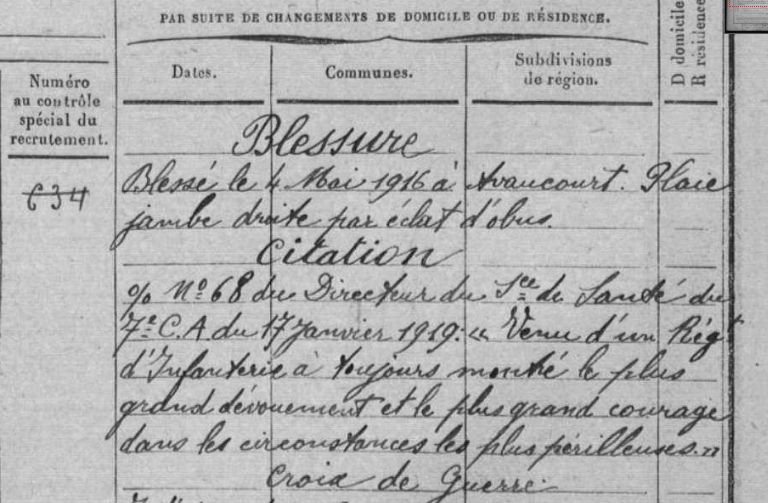 PAR SUITE DE CHANGEMENTS DE DOMICILE OU DE RÉSIDENCE.
D domicile
R résidence
Dates.
Communes.
Subdivisions
de région.
Numéro
au contrôle
spécial du
recrutement.
634
Blessure
Blessé le 4 Mai 1916 à Avaucourt. Plaie
jambe droite par éclat d'obus.
Citation
% N° 68 du Directeur du Sce de Santé du
7e C.A. du 17 Janvier 1919: « Venu d'un Régt
d'Infanterie a toujours montré le plus
grand dévouement et le plus grand courage
dans les circonstances les plus périlleuses. »
Croix de Guerre.